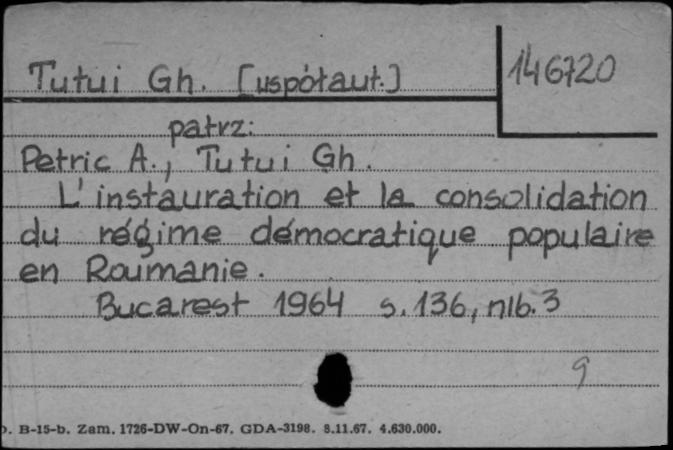 Tutui Gh. [uspółaut.]
146720
patrz:
Petric A., Tutui Gh.
L'instauration et la consolidation
du régime démocratique populaire
en Roumanie.
Bucarest 1964 s. 136, nlb. 3
9
. B-15-b. Zam. 1726-DW-On-67. GDA-3198. 8.11.67. 4.630.000.